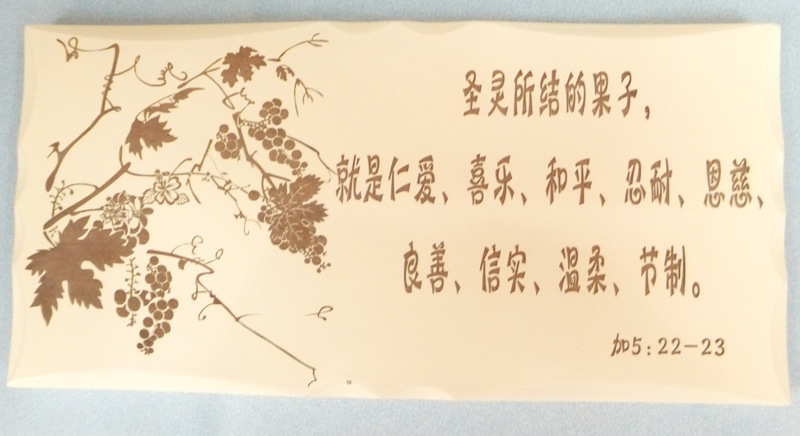 圣灵所结的果子，
就是仁爱、喜乐、和平、忍耐、恩慈、
良善、信实、温柔、节制。
加5:22-23